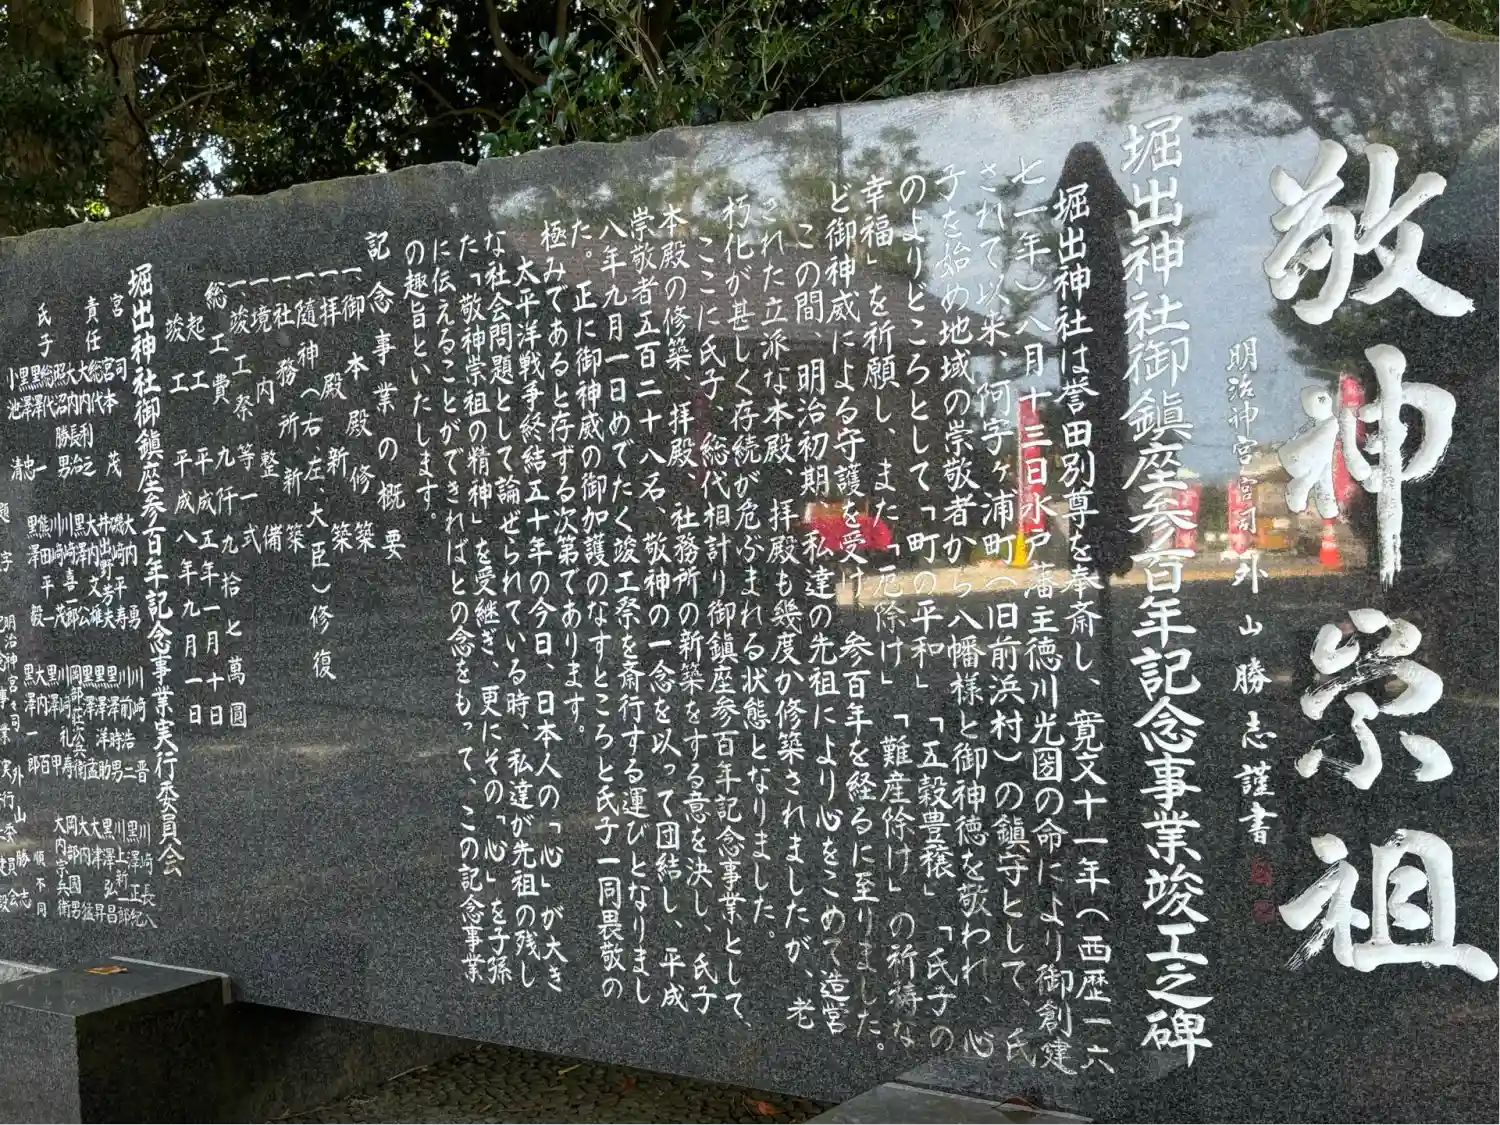 敬神崇祖
明治神宮宮司外山勝志謹書
堀出神社御鎮座参百年記念事業竣工之碑
堀出神社は誉田別尊を奉斎し、寛文十一年(西歴一六
七一年)八月十三日水戸藩主徳川光圀の命により御創建
されて以来、阿字ヶ浦町(旧前浜村)の鎮守として、氏
子を始め地域の崇敬者から八幡様と御神徳を敬われ、心
のよりどころとして「町の平和」「五穀豊穣」「氏子の
幸福」を祈願し、また「厄除け」「難産除け」の祈祷な
ど御神威による守護を受け、参百年を経るに至りました。
この間、明治初期、私達の先祖により心をこめて造営
された立派な本殿、拝殿も幾度か修築されましたが、老
朽化が甚しく存続が危ぶまれる状態となりました。
ここに氏子、総代相計り御鎮座参百年記念事業として、
本殿の修築、拝殿、社務所の新築をする意を決し、氏子
崇敬者五百二十八名、敬神の一念を以って団結し、平成
八年九月一日めでたく竣工祭を斎行する運びとなりまし
た。正に御神威の御加護のなすところと氏子一同畏敬の
極みであると存ずる次第であります。
太平洋戦争終結五十年の今日、日本人の「心」が大き
な社会問題として論ぜられている時、私達が先祖の残し
た「敬神崇祖の精神」を受継ぎ、更にその「心」を子孫
に伝えることができればとの念をもって、この記念事業
の趣旨といたします。
記念事業の概要
一御本殿修築
一拝殿新築
一随神(右左、大臣)修復
一社務所新築
一境内整備
一竣工祭等一式
総工費 九仟九拾七萬圓
起工 平成五年一月十日
竣工 平成八年九月一日
堀出神社御鎮座参百年記念事業実行委員会
宮司 宮本 茂
責任総代 大内利之
大内長治
照沼勝男
氏子総代 黒澤
黒澤 忠一
小池 清
大内 勇
磯崎平寿
井出野芳夫
大内文雄
黒澤 公
川崎喜一郎
川崎 茂
熊田平一
黒澤 毅
川崎 晋
川前浩二
黒澤時男
黒澤洋助
黒澤 孟
岡部荘次兵衛
川崎礼寿
黒澤 甲
大内 百
黒澤一郎
川崎長八
黒澤正紀
川上新一郎
黒澤弘昌
大津 昇
大内 猛
岡部國男
大内宗兵衛
順不同
題字 明治神宮宮司 外山勝志